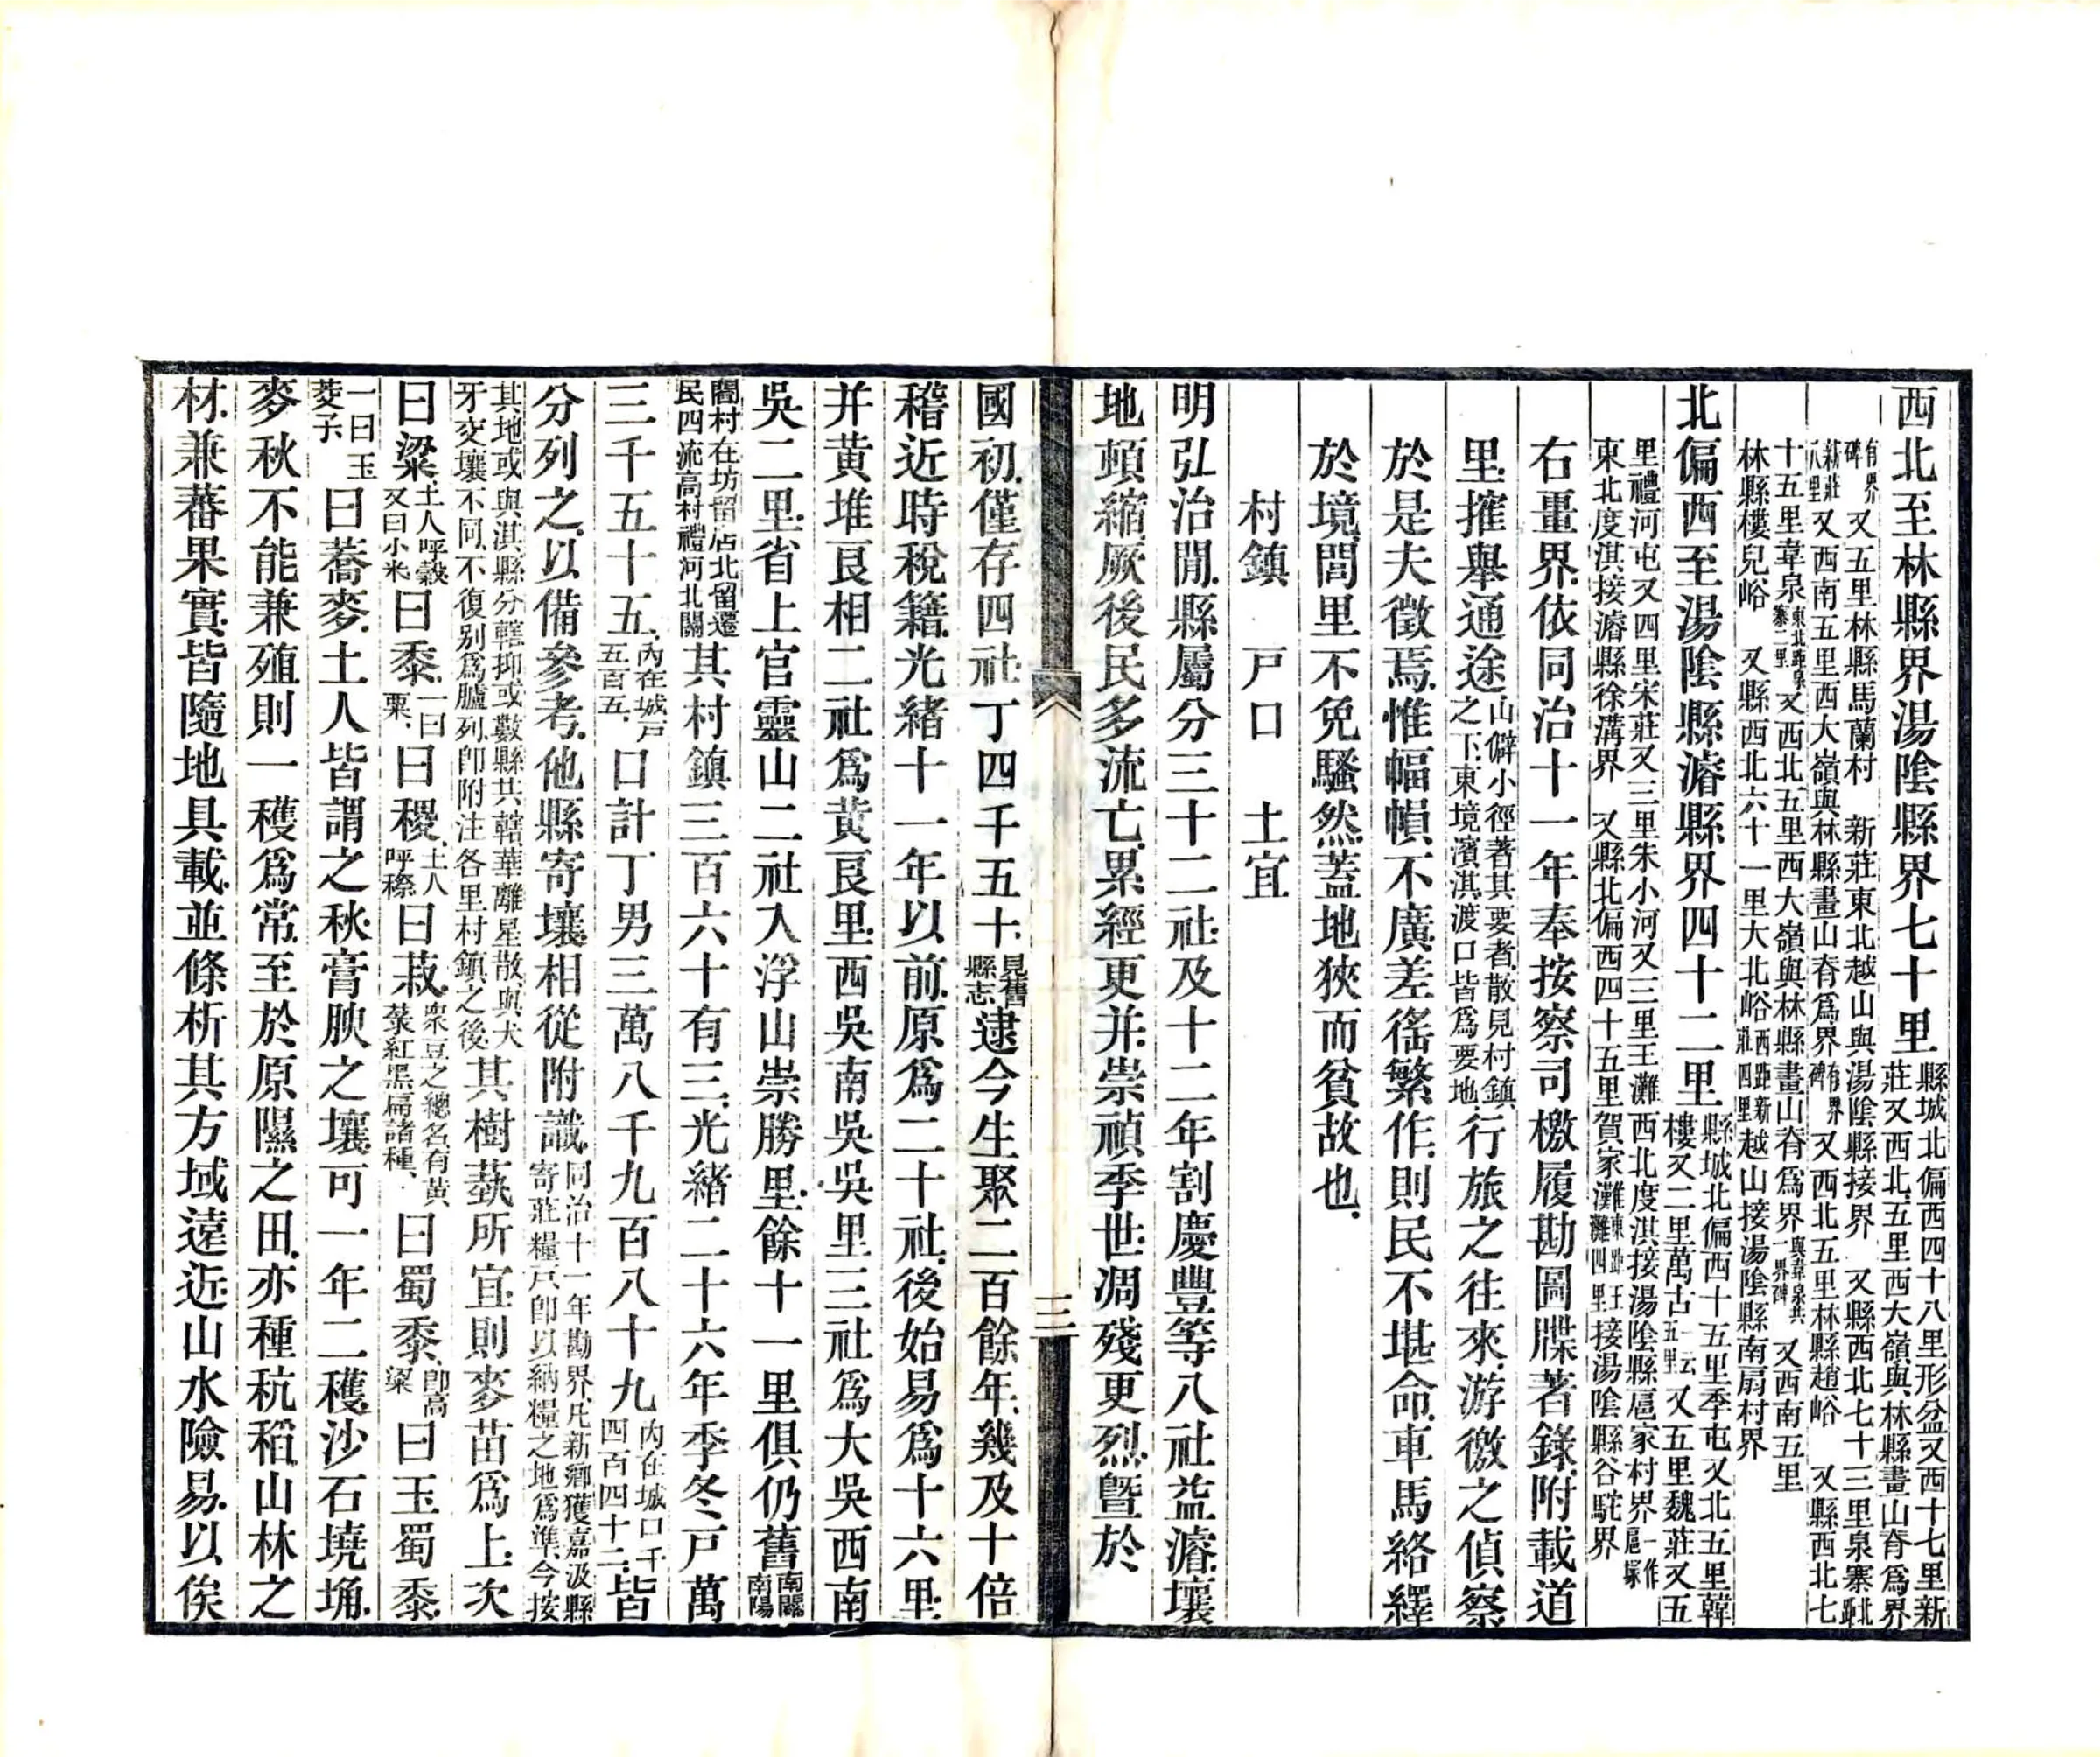 西北至林縣界湯陰縣界七十里縣城北偏西四十八里形盆又西十七里新莊又西北五里西大嶺與林縣畫山脊爲界
有界碑又五里林縣馬蘭村　新莊東北越山與湯陰縣接界　又縣西北七十三里泉寨北距新莊八里又西南五里西大嶺與林縣畫山脊爲界有界碑又西北五里林縣趙峪　又縣西北七
十五里韋泉東北距泉寨二里又西北五里西大嶺與林縣畫山脊爲界與韋泉共一界碑又西南五里林縣樓兒峪　又縣西北六十一里大北峪西距新莊四里越山接湯陰縣南扇村界
北偏西至湯陰縣濬縣界四十二里縣城北偏西十五里季屯又北五里韓樓又二里萬古一云五里又五里魏莊又五
里禮河屯又四里宋莊又三里朱小河又三里王灘西北度淇接湯陰縣扈家村界扈一作塚東北度淇接濬縣徐溝界　又縣北偏西四十五里賀家灘東距王灘四里接湯陰縣谷駝界
右畺界依同治十一年奉按察司檄履勘圖牒著錄附載道
里摧舉通途山僻小徑著其要者散見村鎮之下東境濱淇渡口皆爲要地行旅之往來游徼之偵察
於是夫徵焉惟幅幀不廣差徭繁作則民不堪命車馬絡繹
於境閭里不免騷然蓋地狹而貧故也
村鎮　戸口　土宜
明弘治閒縣屬分三十二社及十二年割慶豐等八社益濬壤
地頓縮厥後民多流亡累經更并崇禎季世凋殘更烈曁於
三
國初僅存四社丁四千五十見舊縣志逮今生聚二百餘年幾及十倍
稽近時稅籍光緒十一年以前原爲二十社後始易爲十六里
并黄堆艮相二社爲黄艮里西吳南吳吳里三社爲大吳西南
吳二里省上官靈山二社入浮山崇勝里餘十一里俱仍舊南關南陽
閻村在坊留店北留遷民四流高村禮河北關其村鎮三百六十有三光緒二十六年季冬戸萬
三千五十五內在城戸五百五口計丁男三萬八千九百八十九內在城口千四百四十二皆
分列之以備參考他縣寄壤相從附識同治十一年勘界凡新鄉獲嘉汲縣寄莊糧戸卽以納糧之地爲準今按
其地或與淇縣分轄抑或數縣共轄華離星散與犬牙交壤不同不復别爲臚列卽附注各里村鎮之後其樹蓺所宜則麥苗爲上次
曰粱土人呼穀又曰小米曰黍一曰粟曰稷土人呼穄曰菽衆豆之總名有黄菉紅黑扁諸種曰蜀黍卽高粱曰玉蜀黍
一曰玉茭子曰蕎麥土人皆謂之秋膏腴之壤可一年二穫沙石墝埆
麥秋不能兼殖則一穫爲常至於原隰之田亦種秔稻山林之
材兼蕃果實皆隨地具載並條析其方域遠近山水險易以俟